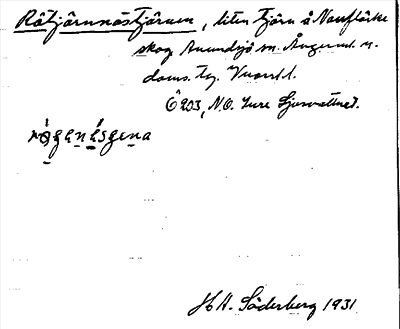 Råtjärnnästjärnen, liten tjärn å Nauflärke
skog Anundsjö sn. Ångerml. n.
doms. tg. Vnorrl. l.
6 203, N.O. Inre Sjunvattnet.
H. A. Söderberg 1931